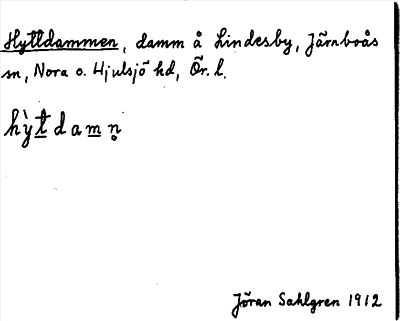 Hyttdammen, damm å Lindesby, Järnboås
sn, Nora o. Hjulsjö hd, Ör. l.
hỳt̲dam̲n̥
Jöran Sahlgren 1912